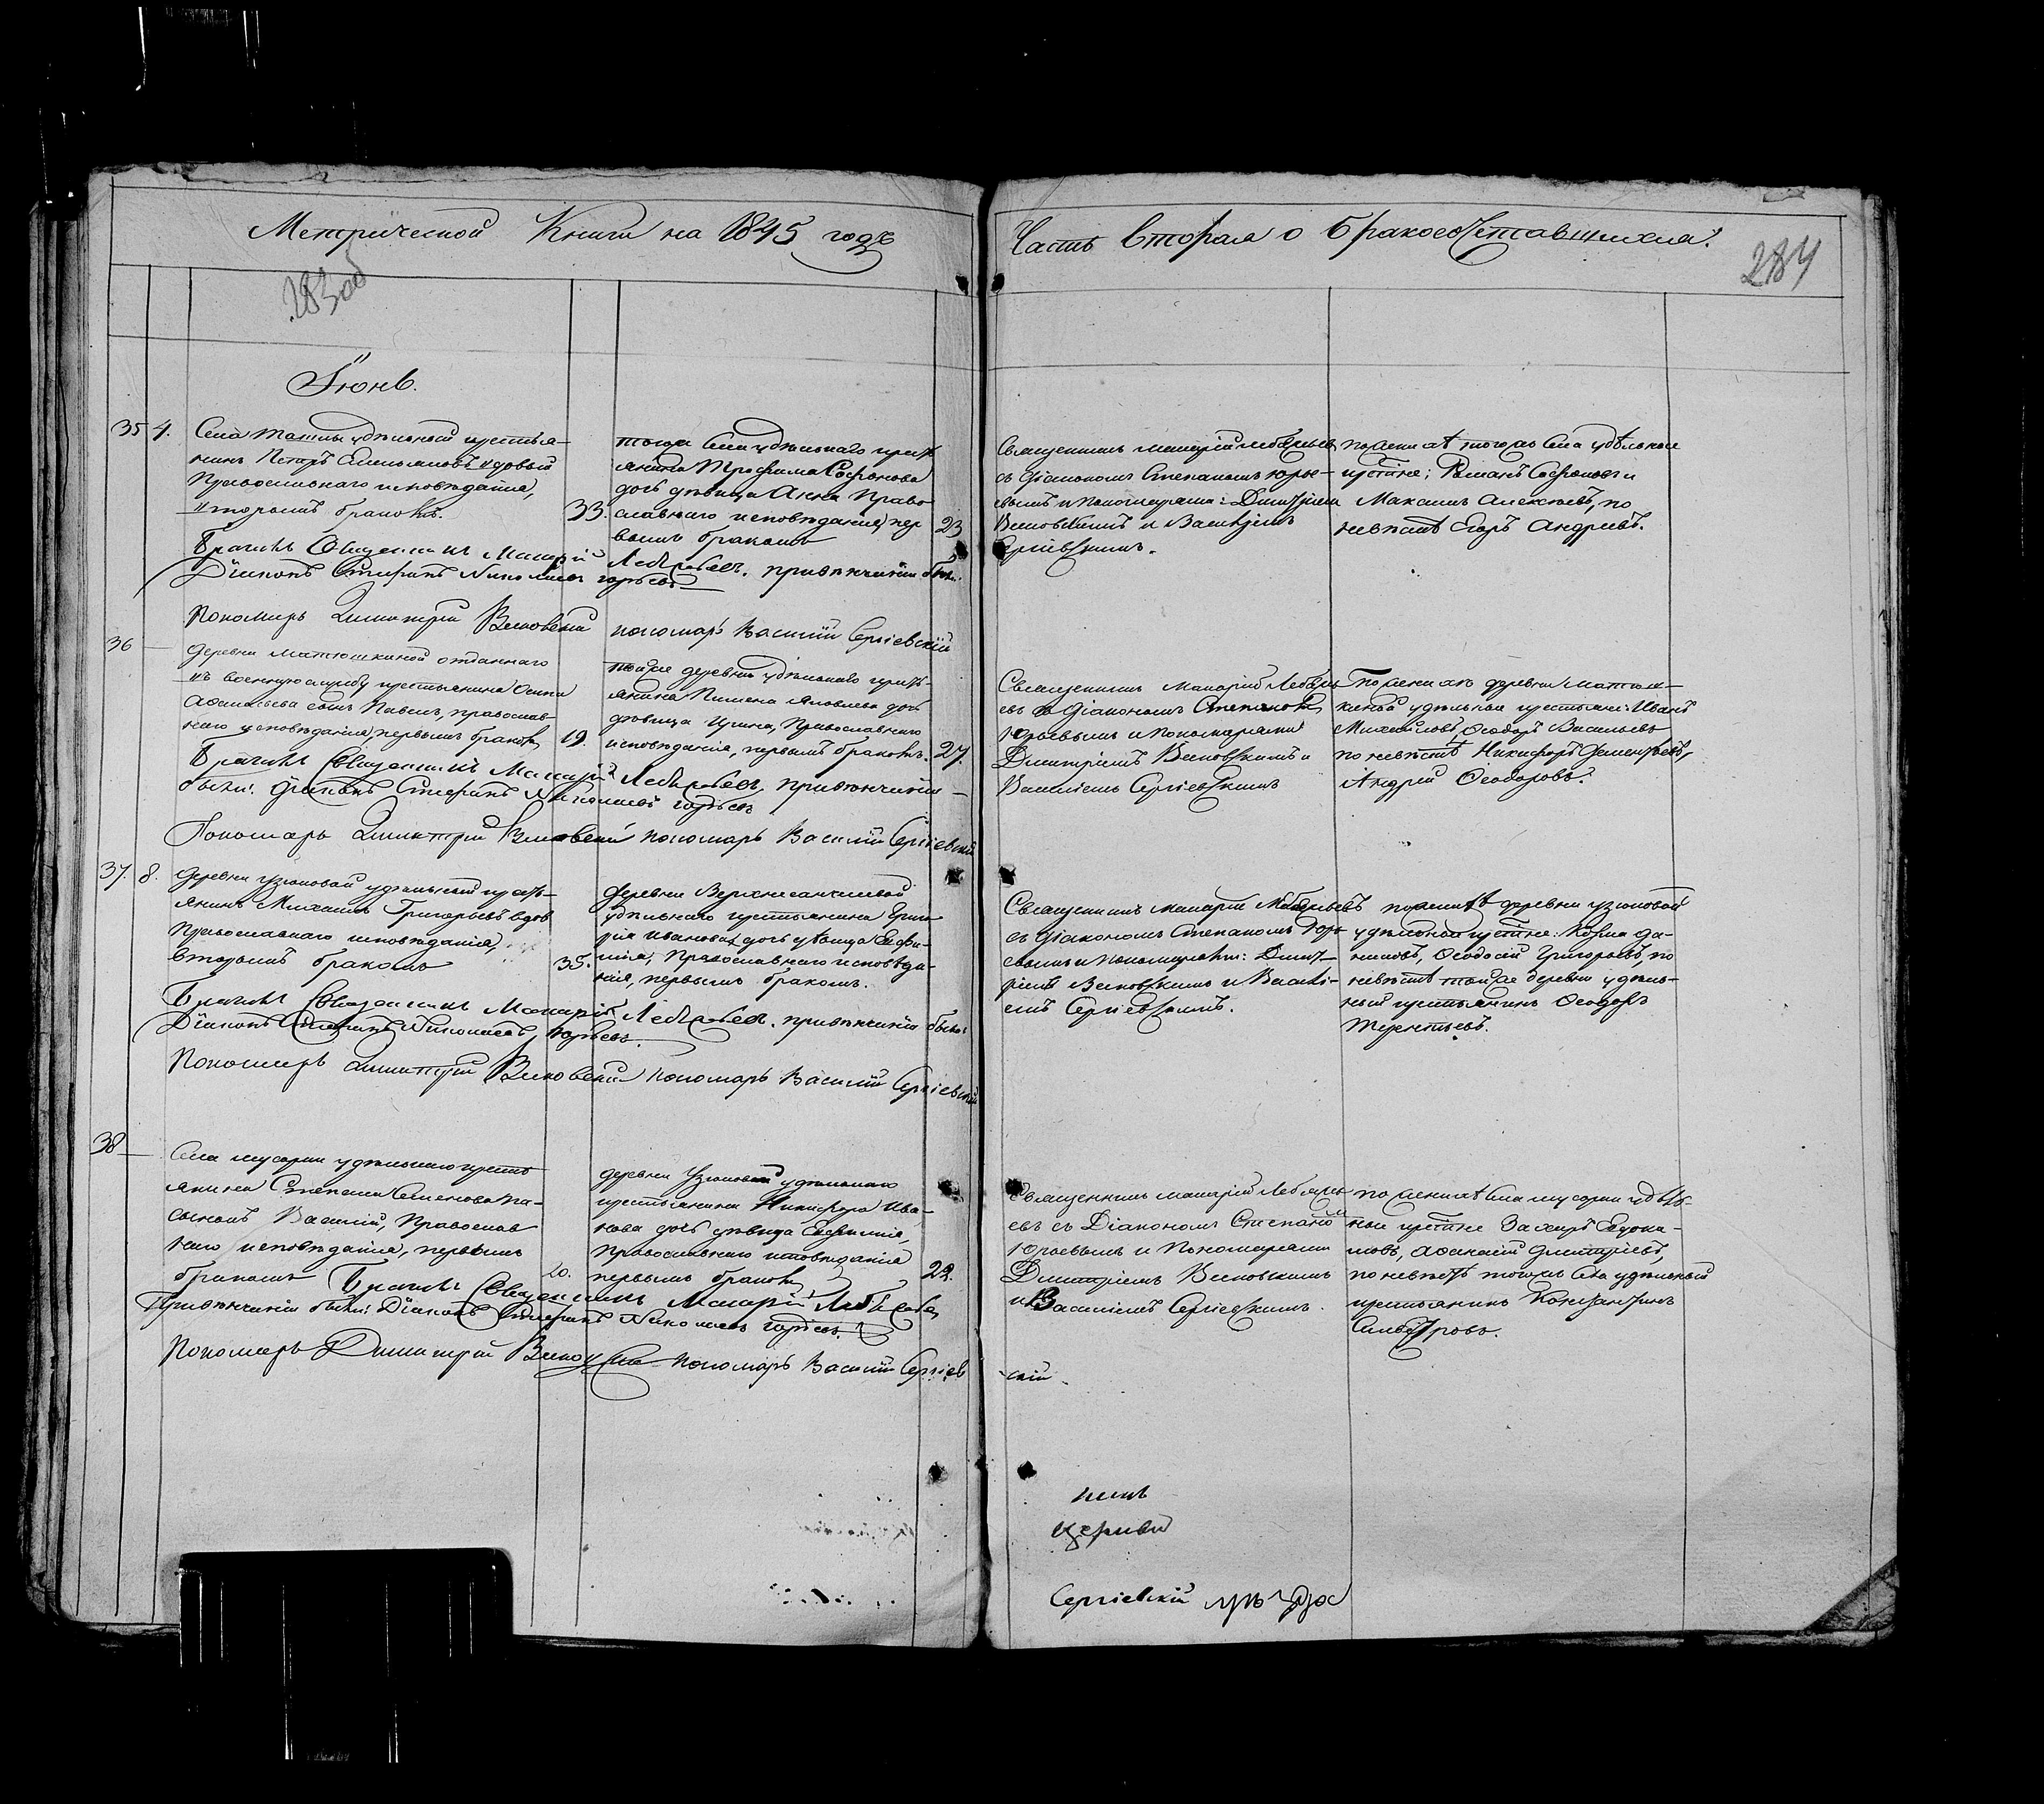 Метрической Книги на 1845 годъ
Часть вторая о бракосочетавшихся.
283об
284
Іюнь.
35 4.
Села Ташлы удѣльный крестья-
нинъ Петръ Емельяновъ вдовый
Православнаго исповѣданія,
вторымъ бракомъ.
33.
тогожъ Села удѣльнаго крест
янина Трофима Софронова
дочь дѣвица Анна Право
славнаго исповѣданія, пер
вымъ бракомъ
23
Священникъ Макарій Лебедевъ
съ Діакономъ Степаномъ Юрье-
вымъ и Пономарями: Димитріем
и Василіемъ
Сергіевскимъ.
по женихѣ тогожъ Села удѣльные
крестьяне: Романъ Софроновъ и
Максимъ Алексѣевъ, по
невѣстѣ Егоръ Андреевъ.
Бракъ Священникъ Макарій
повѣнчаніи были:
Діаконъ Стефанъ Николаевъ Юрьевъ
Пономарь Димитрій
пономарь Василій Сергіевскій
36
деревни Матюшкиной отданнаго
въ военную службу крестьянина Осипа
Афанасьева сынъ Павелъ, православ-
наго исповѣданія, первымъ бракомъ
19.
тойже деревни удѣльнаго крест-
янина Пимена Яковлева дочь
дѣвица Ирина, Православнаго
исповѣданія, первымъ бракомъ.
27.
Священникъ Макарій
съ Діакономъ Степаномъ
Юрьевымъ и Пономарями
Димитріемъ и
Василіемъ Сергіевскимъ
По женихѣ деревни Матюш-
киной удѣльные крестьяне: Иванъ
Михайловъ, Ѳеодоръ Васильевъ
по невѣстѣ Никифоръ Дементьевъ,
Андрей Ѳеодоровъ.
Бракъ Священникъ Макарій
были: Діаконъ Стефанъ Николаевъ Юрьевъ
Пономарь Димитрій пономарь Василій Сергіевскій
37. 8.
деревни Узюковой удѣльный крест-
янинъ Михаилъ Григорьевъ вдов
Православнаго исповѣданія,
вторымъ бракомъ
35.
деревни Верхнесанчелеевой
удѣльнаго крестьянина
Иванова дочь дѣвица Евфи-
мія, Православнаго исповѣда-
нія, первымъ бракомъ.
Священникъ Макарій
съ Діакономъ Степаномъ Юрь
евымъ и Пономарями: Димит-
ріемъ и Василі-
емъ Сергіевскимъ.
по женихѣ деревни Узюковой
удѣльные крестьяне: Козма Да-
ниловъ, Ѳеодосій Григорьевъ, по
невѣстѣ тойже деревни удѣль-
ный крестьянинъ Ѳеодоръ
Терентьевъ.
Бракъ Священникъ Макарій
Діаконъ Стефанъ Николаевъ Юрьевъ.
Пономарь Димитрій пономарь Василій Сергіевскій
38
Села Мусорки удѣльнаго крестъ
янина Степана Семенова па-
сынокъ Василій, Православ
наго исповѣданія, первымъ
бракомъ
20.
деревни Узюковой удѣльнаго
крестьянина Никифора Ива-
нова дочь дѣвица Евфимія,
Православнаго исповѣданія
первымъ бракомъ
22.
Священникъ Макарій
съ Діакономъ Степаномъ
Юрьевымъ и Пономарями
Димитріемъ
и Василіемъ Сергіевскимъ.
по женихѣ Села Мусорки удѣль-
ные крестьяне Захаръ Евдоки-
мовъ, Афанасій Дмитріевъ,
по невѣстѣ тогожъ Села удѣльный
крестьянинъ Константинъ
Силвестровъ.
Бракъ Священникъ Макарій
были: Діаконъ Стефанъ Николаевъ Юрьевъ.
Пономарь Димитрій пономарь Василій Сергіев
-скій
церкви
Сергіевскій